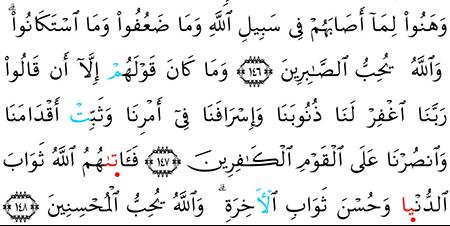 وَهَنُوا۟ لِمَآ أَصَابَهُمْ فِى سَبِيلِ ٱللَّهِ وَمَا ضَعُفُوا۟ وَمَا ٱسْتَكَانُوا۟ ۗ
وَٱللَّهُ يُحِبُّ ٱلصَّـٰبِرِينَ ١٤٦ وَمَا كَانَ قَوْلَهُمْ إِلَّآ أَن قَالُوا۟
رَبَّنَا ٱغْفِرْ لَنَا ذُنُوبَنَا وَإِسْرَافَنَا فِىٓ أَمْرِنَا وَثَبِّتْ أَقْدَامَنَا
وَٱنصُرْنَا عَلَى ٱلْقَوْمِ ٱلْكَـٰفِرِينَ ١٤٧ فَـَٔاتىٰهُمُ ٱللَّهُ ثَوَابَ
ٱلدُّنْيا وَحُسْنَ ثَوَابِ ٱلْأَخِرَةِ ۗ وَٱللَّهُ يُحِبُّ ٱلْمُحْسِنِينَ ١٤٨